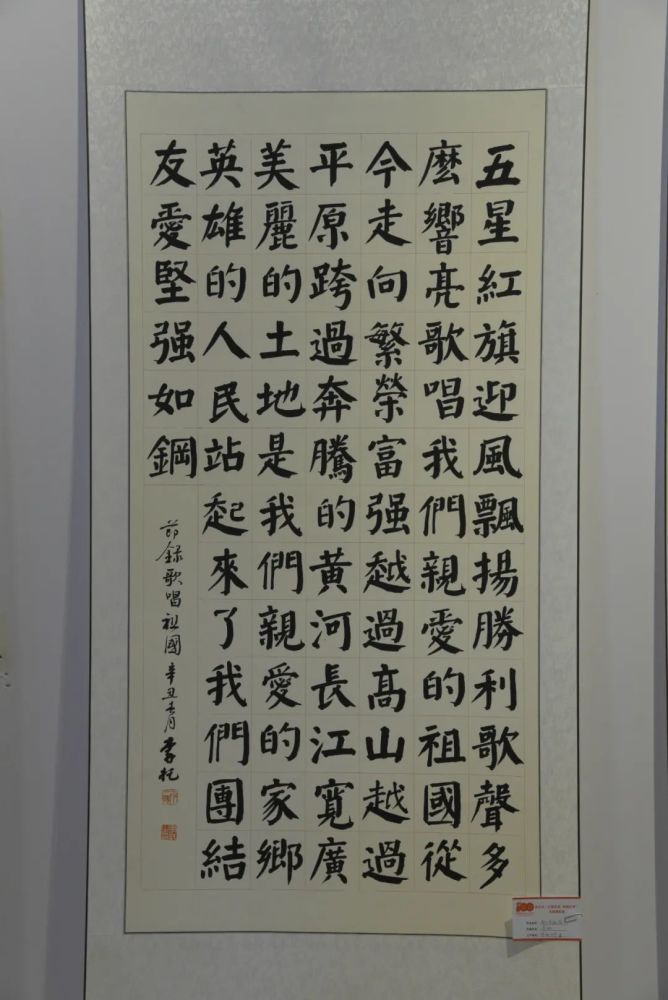 五星紅旗迎風飄揚勝利歌聲多
麼響亮歌唱我們親愛的祖國從
今走向繁榮富强越過高山越過
平原跨過奔騰的黄河長江寬廣
美麗的土地是我們親愛的家鄉
英雄的人民站起來了我們團結
友愛堅强如鋼
節録歌唱祖國辛丑